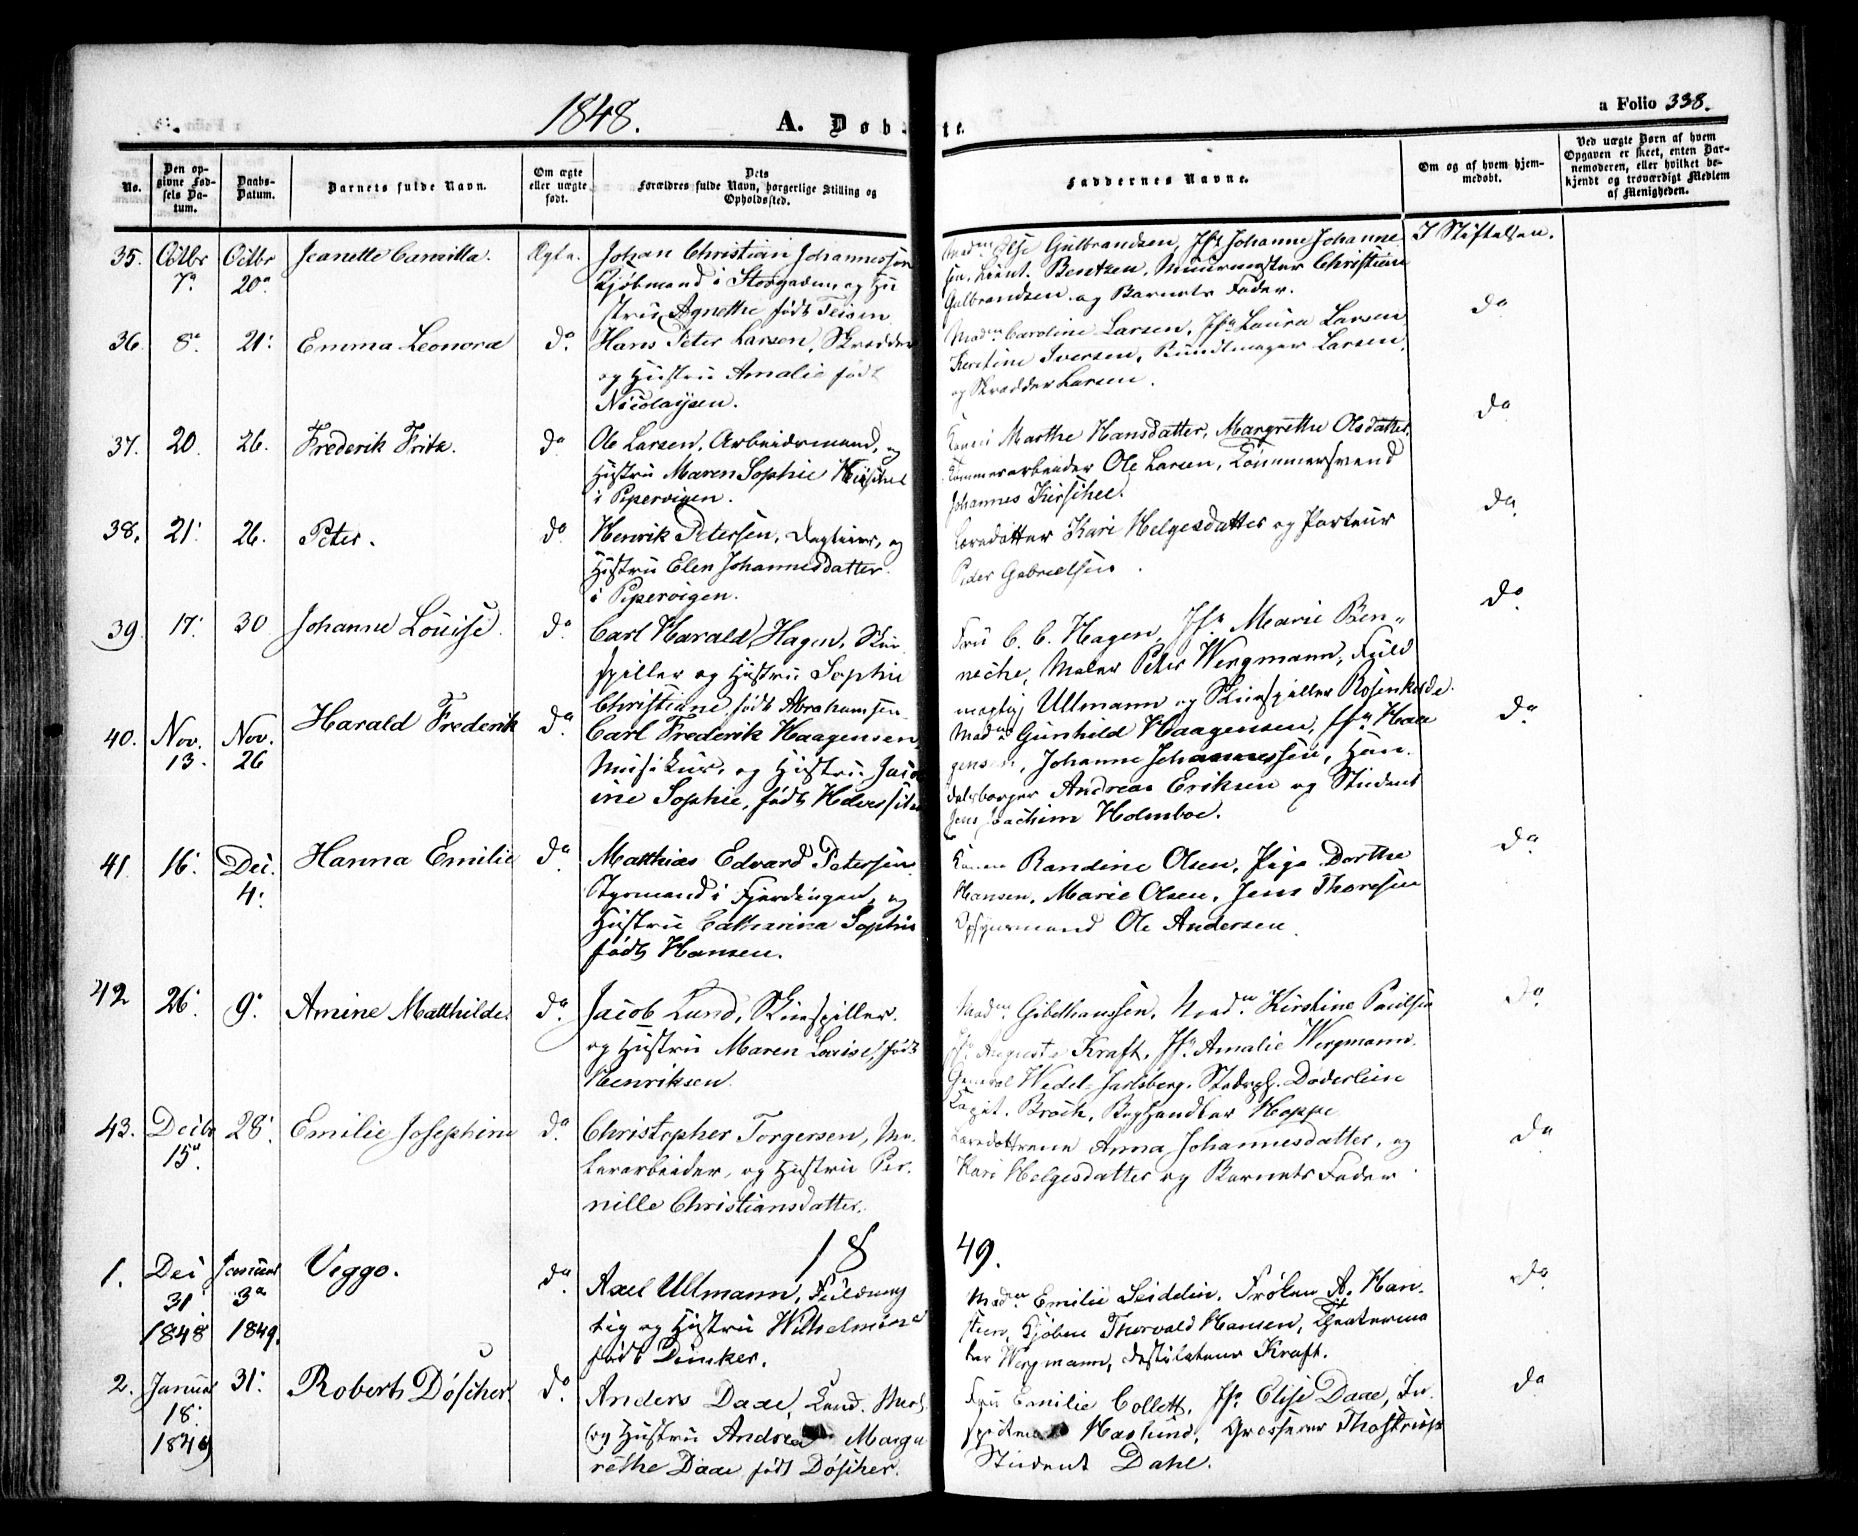 1848.
A. Døb- te.
a Folio 338.
No.
Den opgivne Fødsels Datum.
Daabs-Datum.
Barnets fulde Navn.
Om ægte eller uægte født.
Dets Forældres fulde Navn, borgerlige Stilling og Opholdssted.
Faddernes Navne.
Om og af hvem hjemmedøbt.
Ved uægte Børn af hvem Opgaven er skeet, enten Barnemoderen, eller hvilket bekjendt og troværdigt Medlem af Menigheden.
35. Octbr 7de Octbr 20de Jeanette Camilla. Ægte.
Johan Christian Johannessen
Kjøbmand i Storgaden, og Hu
stru Agnethe født
Madm Else Gulbrandsen, Jfr Johanne Johanne
sen, Lieut. Bentzen, Muurmester Christian
Gulbrandsen og Barnets Fader.
I Stiftelsen.
36. 8de 21. Emma Leonora do.
Hans Peter Larsen, Skrædder
og Hustru Amalie født
Nicolaysen.
Madm Caroline Larsen, Jfr Laura Larsen
Kirstine Iversen, Bundtmager Larsen,
og Skrædder Larsen.
do
37. 20. 26. Frederik Fritz. do
Ole Larsen, Arbeidsmand, og
Hustru Maren Sophie
i Pipervigen.
Konen Marthe Hansdatter, Margrethe Olsdatter,
Tømmerarbeider Ole Larsen, Tømmersvend
Johannes
do
38. 21. 26. Peter. do
Henrik Petersen, Dagleier, og
Hustru Elen Johannesdatter
i Pipervigen.
Læredatter Kari Helgesdatter og Porteur
Peder Gabrielsen.
do
39. 17. 30 Johanne Louise. do
Carl Harald Hagen, Skue
spiller og Hustru Sophie
Christiane født Abrahamsen.
Fru C. C. Hagen, Jfr Marie Ben-
neche, Maler Peter Wergmann, Fuld
mægtig Ullmann og Skuespiller Rosenkilde.
do
40. Nov. 13. Nov. 26 Harald Frederik do
Carl Frederik Haagensen,
Musikus, og Hustru
ine Sophie, født
Madm Gunhild Haagensen, Jfr Haa
gensen, Johanne Johannessen, Han
delsborger Andreas Eriksen og Student
Jens Joachim Holmboe.
do
41. 16. Dec. 4. Hanna Emilie do
Matthias Edvard Petersen
Styrmand i Fjerdingen, og
Hustru Catharina Sophie
født Hansen.
Konen Randine Olsen, Pige Dorthe
Hansen, Marie Olsen, Jens Thoresen
Opsynsmand Ole Andersen.
do
42 26. 9. Amine Matthilde. do
Jacob Lund, Skuespiller.
og Hustru Maren Lovise, født
Henriksen.
Madm Gibethanssen, Madm. Kirstine Paulsen
Jfr. Augusta Kraft, Jfr. Amalie Wergmann.
General Wedel-Jarlsberg, Stadsph. Døderlein
Capit. Broch, Boghandler Hoppe
do
43. Decbr 15de 28. Emilie Josephine do
Christopher Torgersen, Mu-
rerarbeider, og Hustru Per-
nille Christiansdatter.
Læredøttrene Anna Johannesdatter, og
Kari Helgesdatter og Barnets Fader.
do
18 49.
1. Dec 31 1848 Januar 3de 1849. Viggo. do
Axel Ullmann, Fuldmæg
tig og Hustru Wilhelmine
født Dunker.
Madm Emilie Seidelin, Frøken A. Han-
steen, Kjøbm Thorvald Hansen, Theaterma
ler Wergmann, Destilateur Kraft.
do
2. Januar 18. 1849 31. Roberth Døscher. do
Anders Daae, Cand. Med.
og Hustru Andrea Marga
rethe Daae født Døscher.
Fru Emilie Collett, Jfr Elise Daae, In-
Haslund, Grosserer Thostrup
Student Dahl.
do